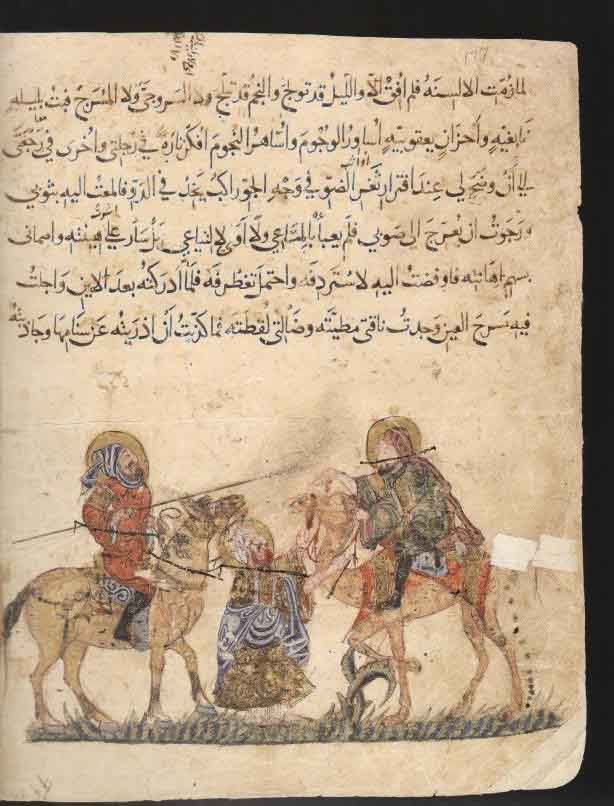 لما زمت الالسنة فلم افق الا والليل قد تولج والنجم قد تبلج ولا السروجى ولا المسرج فبت بليلة
نابغيه واحزان يعقوبيه اساور الوجوم واساهر النجوم افكر تارة في رجلتي واخرى في رجعتى
الى ان وضح لى عند افترار ثغر الضو في وجه الجو راكب يخد في الدو فالمعت اليه بثوبى
ورجوت ان يعرج الى صوبى فلم يعبأ بالماعي ولا اوى لالتياعي بل سار على هينته واصمانى
بسهم اهانته فاوفضت اليه لاستردفه واحتمل تغطرفه فلما ادركته بعد الاين واجلت
فيه مسرح العين وجدت ناقتى مطيته وضالتى لقطته فما كذبت ان اذريته عن سنامها وجاذبته